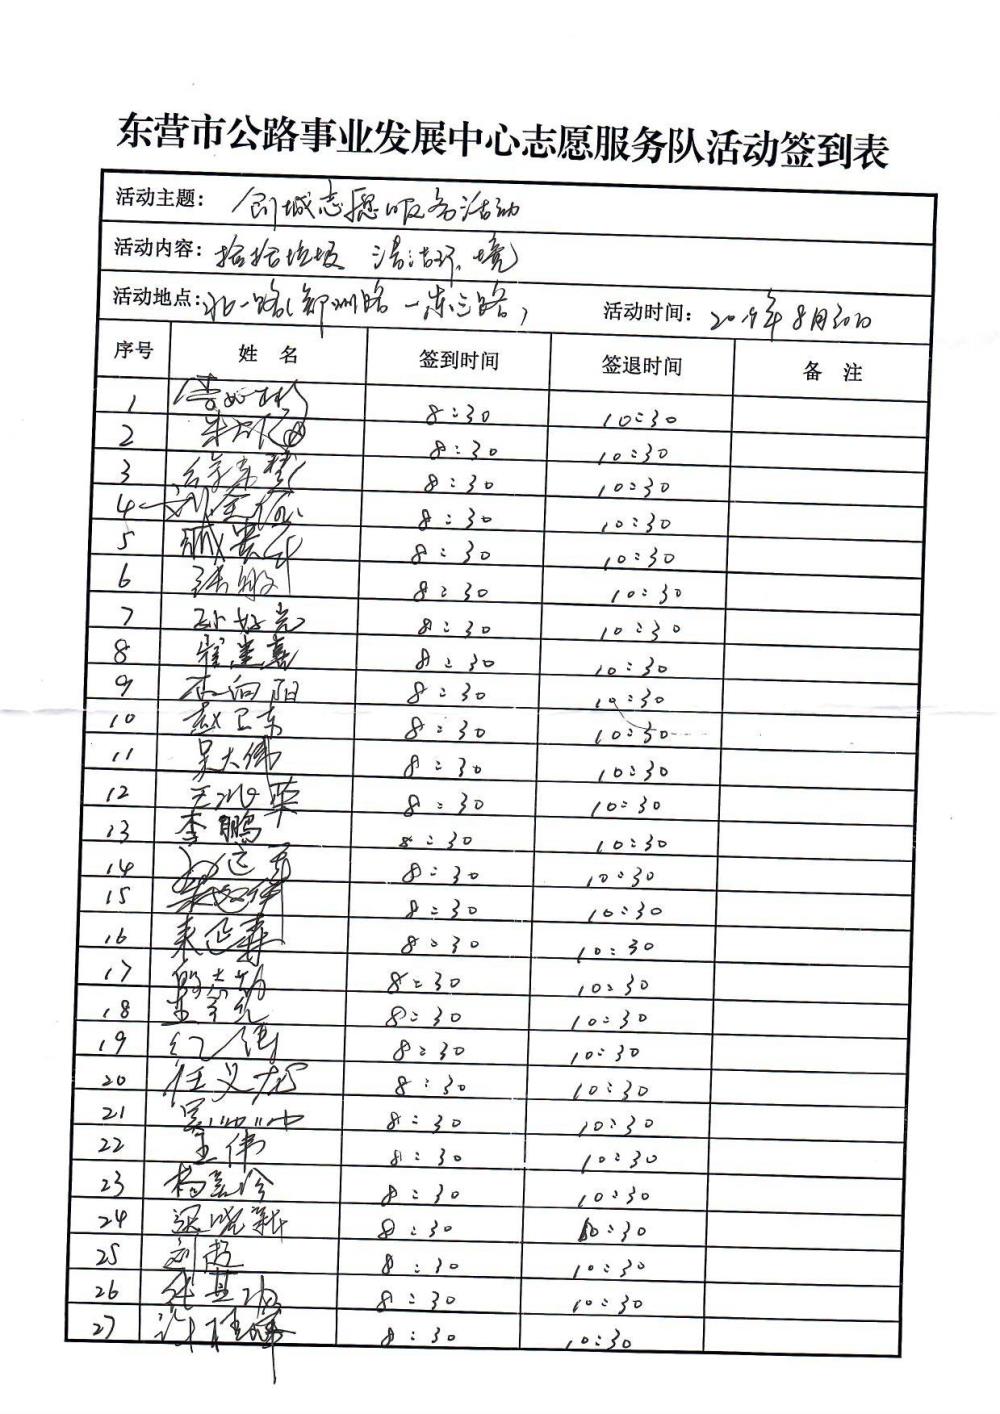 东营市公路事业发展中心志愿服务队活动签到表
活动主题: 创城志愿服务活动
活动内容: 捡拾垃圾 清洁环境
活动地点: 北一路(郑州路一东三路) 活动时间: 2019年8月30日
序号 姓 名 签到时间 签退时间 备 注
1 8:30 10:30
2 8:30 10:30
3 8:30 10:30
4 8:30 10:30
5 8:30 10:30
6 张敏 8:30 10:30
7 孙好亮 8:30 10:30
8 8:30 10:30
9 向阳 8:30 10:30
10 赵卫东 8:30 10:30
11 吴大伟 8:30 10:30
12 8:30 10:30
13 李鹏 8:30 10:30
14 8:30 10:30
15 8:30 10:30
16 8:30 10:30
17 8:30 10:30
18 8:30 10:30
19 8:30 10:30
20 任义龙 8:30 10:30
21 8:30 10:30
22 王伟 8:30 10:30
23 8:30 10:30
24 梁晓新 8:30 10:30
25 刘超 8:30 10:30
26 8:30 10:30
27 8:30 10:30